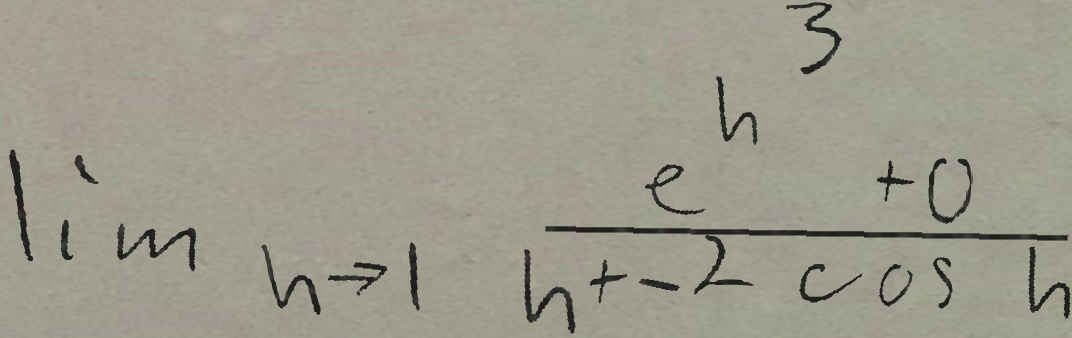 \lim_{h \to 1} \frac{e^{h^3}+0}{h+-2\cos h}